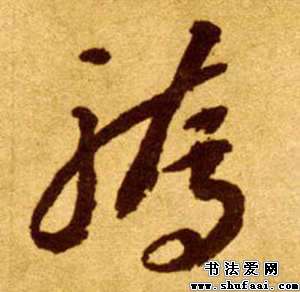 騰
书法爱网
www.shufaai.com